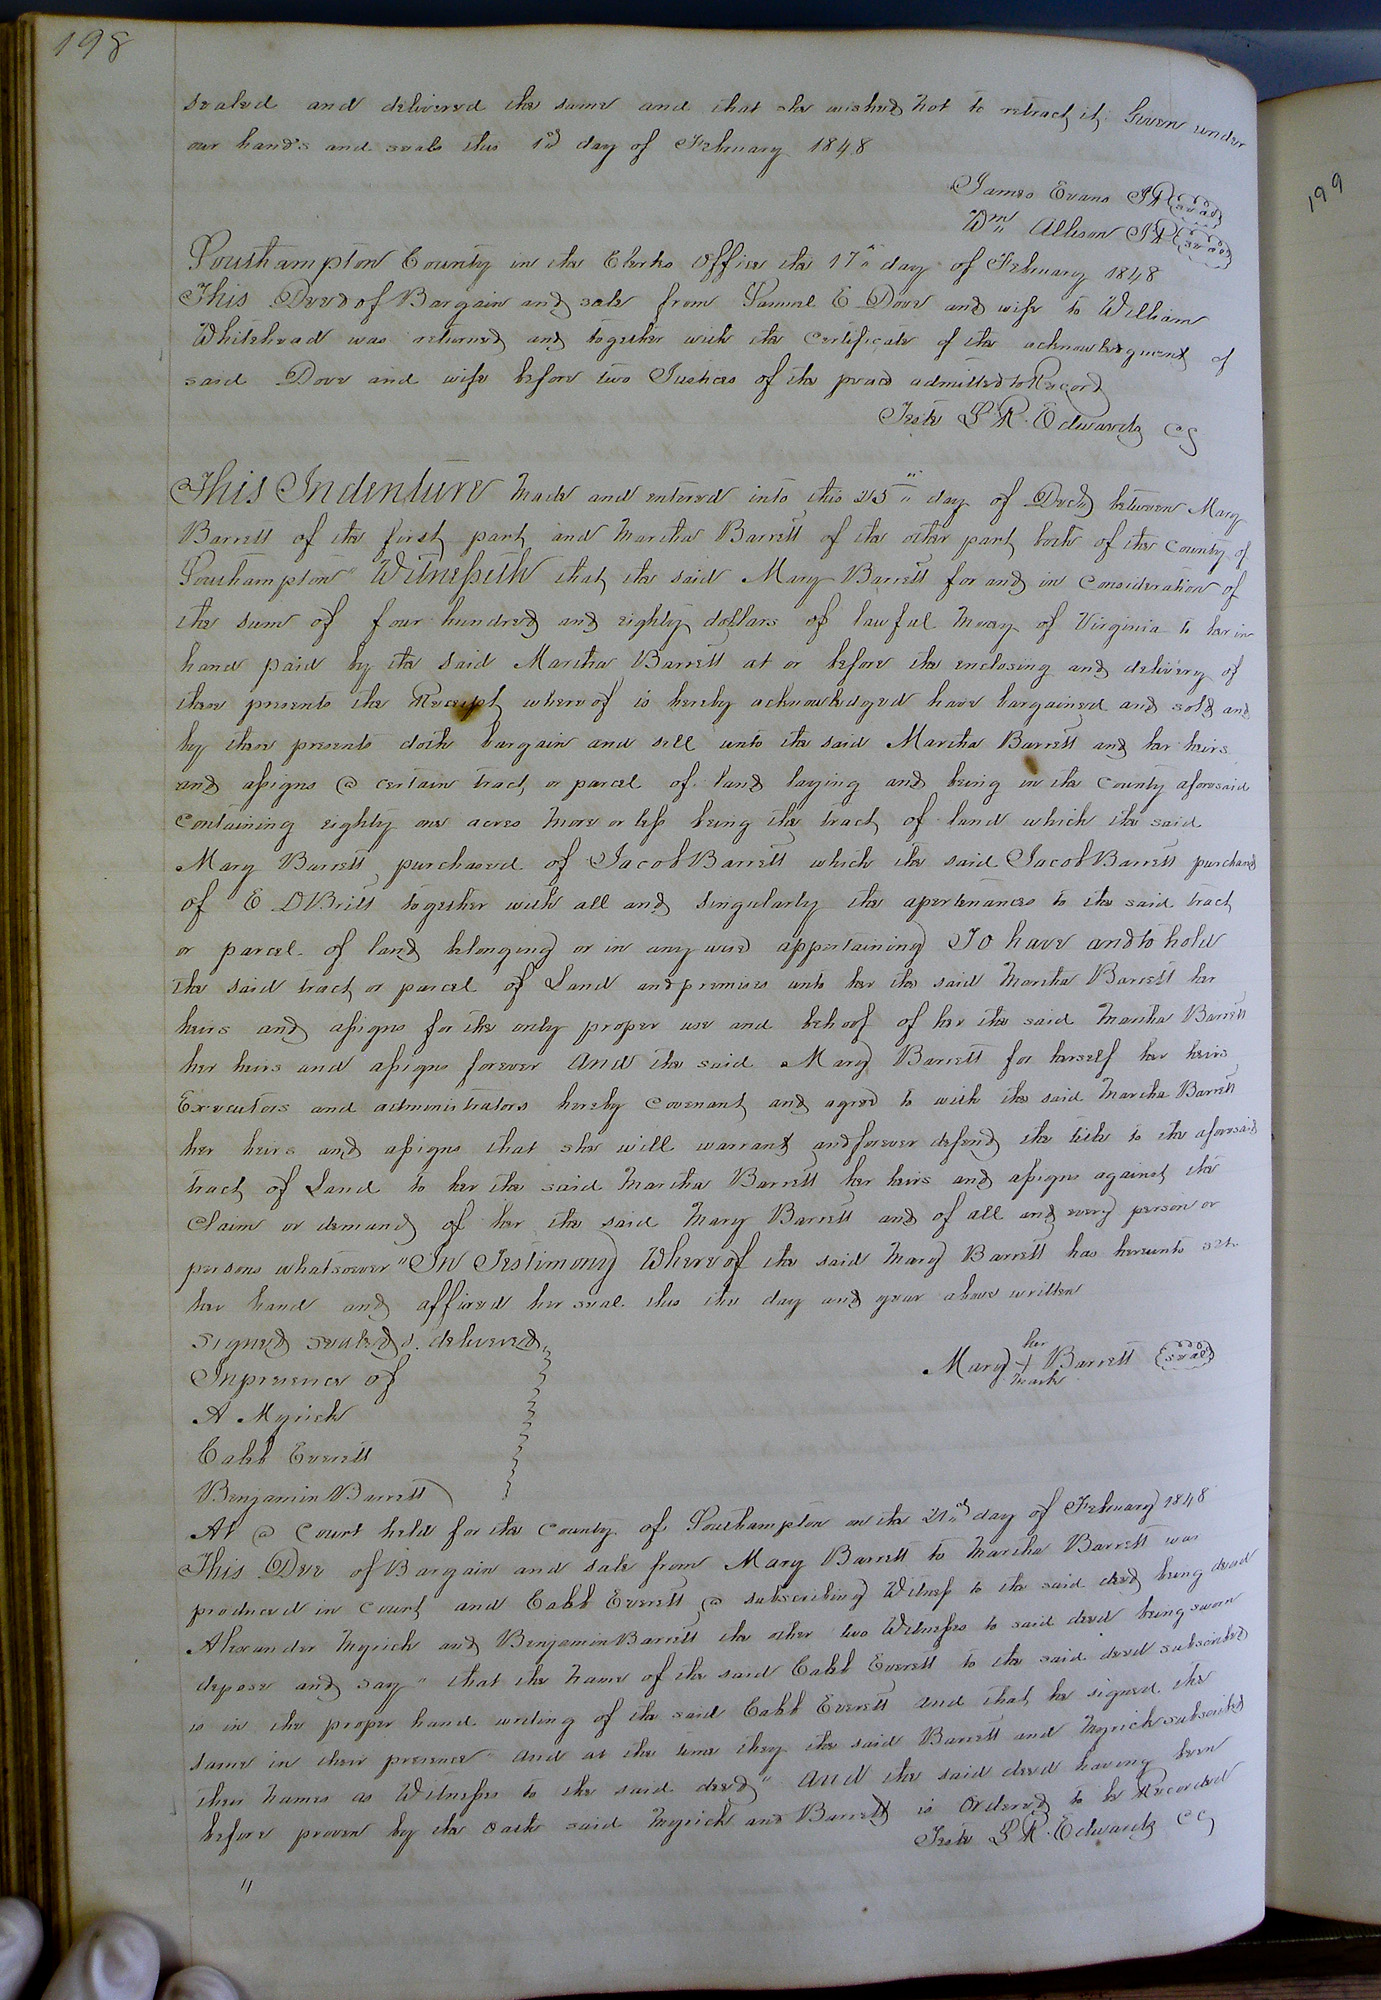 198
sealed and delivered the same and that she wished not to retract it. Given under
our hands and seals this 1st day of February 1848
James Evans JP seal
Wm Allison JP seal
Southampton County in the Clerks Office the 17th day of February 1848
This Deed of Bargain and sale from Samuel E Dove and wife to William
Whitehead was returned and together with the certificate of the acknowledgment of
said Dove and wife before two Justices of the peace admitted to Record
Teste L R Edwards CC
This Indenture Made and entered into this 25th day of Decr between Mary
Barrett of the first part and Martha Barrett of the other part both of the County of
Southampton " Witnesseth that the said Mary Barrett for and in Consideration of
the sum of four hundred and eighty dollars of lawful Money of Virginia to her in
hand paid by the said Martha Barrett at or before the enclosing and delivery of
these presents the Receipt whereof is hereby acknowledged have bargained and sold and
by these presents doth bargain and sell unto the said Martha Barrett and her heirs
and assigns a certain tract or parcel of land laying and being in the County aforesaid
Containing eighty one acres More or less being the tract of land which the said
Mary Barrett purchased of Jacob Barrett which the said Jacob Barrett purchased
of E D Britt together with all and singularly the apertenances to the said tract
or parcel of land belonging or in any wise appertaining To have and to hold
the said tract or parcel of Land and premises unto her the said Martha Barrett her
heirs and assigns for the only proper use and behoof of her the said Martha Barrett
her heirs and assigns forever And the said Mary Barrett for herself her heirs
Executors and administrators hereby Covenant and agree to with the said Martha Barrett
her heirs and assigns that she will warrant and forever defend the title to the aforesaid
tract of Land to her the said Martha Barrett her heirs and assigns against the
Claim or demand of her the said Mary Barrett and of all and every person or
persons whatsoever " In Testimony Whereof the said Mary Barrett has hereunto set
her hand and affixed her seal this the day and year above written
Signed Sealed & delivered
In presence of
A Myrick
Caleb Everett
Benjamin Barrett
her
Mary + Barrett seal
mark
At a Court held for the County of Southampton on the 21st day of February 1848
This Dee of Bargain and sale from Mary Barrett to Martha Barrett was
produced in Court and Caleb Everett a subscribing Witness to the said deed being dead
Alexander Myrick and Benjamin Barrett the other two Witnesses to said deed being sworn
depose and say " that the Name of the said Caleb Everett to the said deed subscribed
is in the proper hand writing of the said Caleb Everett and that he signed the
same in their presence " and at the time they the said Barrett and Myrick subscribed
their Names as Witnesses to the said deed " And the said deed having been
before proven by the oath said Myrick and Barrett is Ordered to be Recorded
Teste L R Edwards CC
"
199